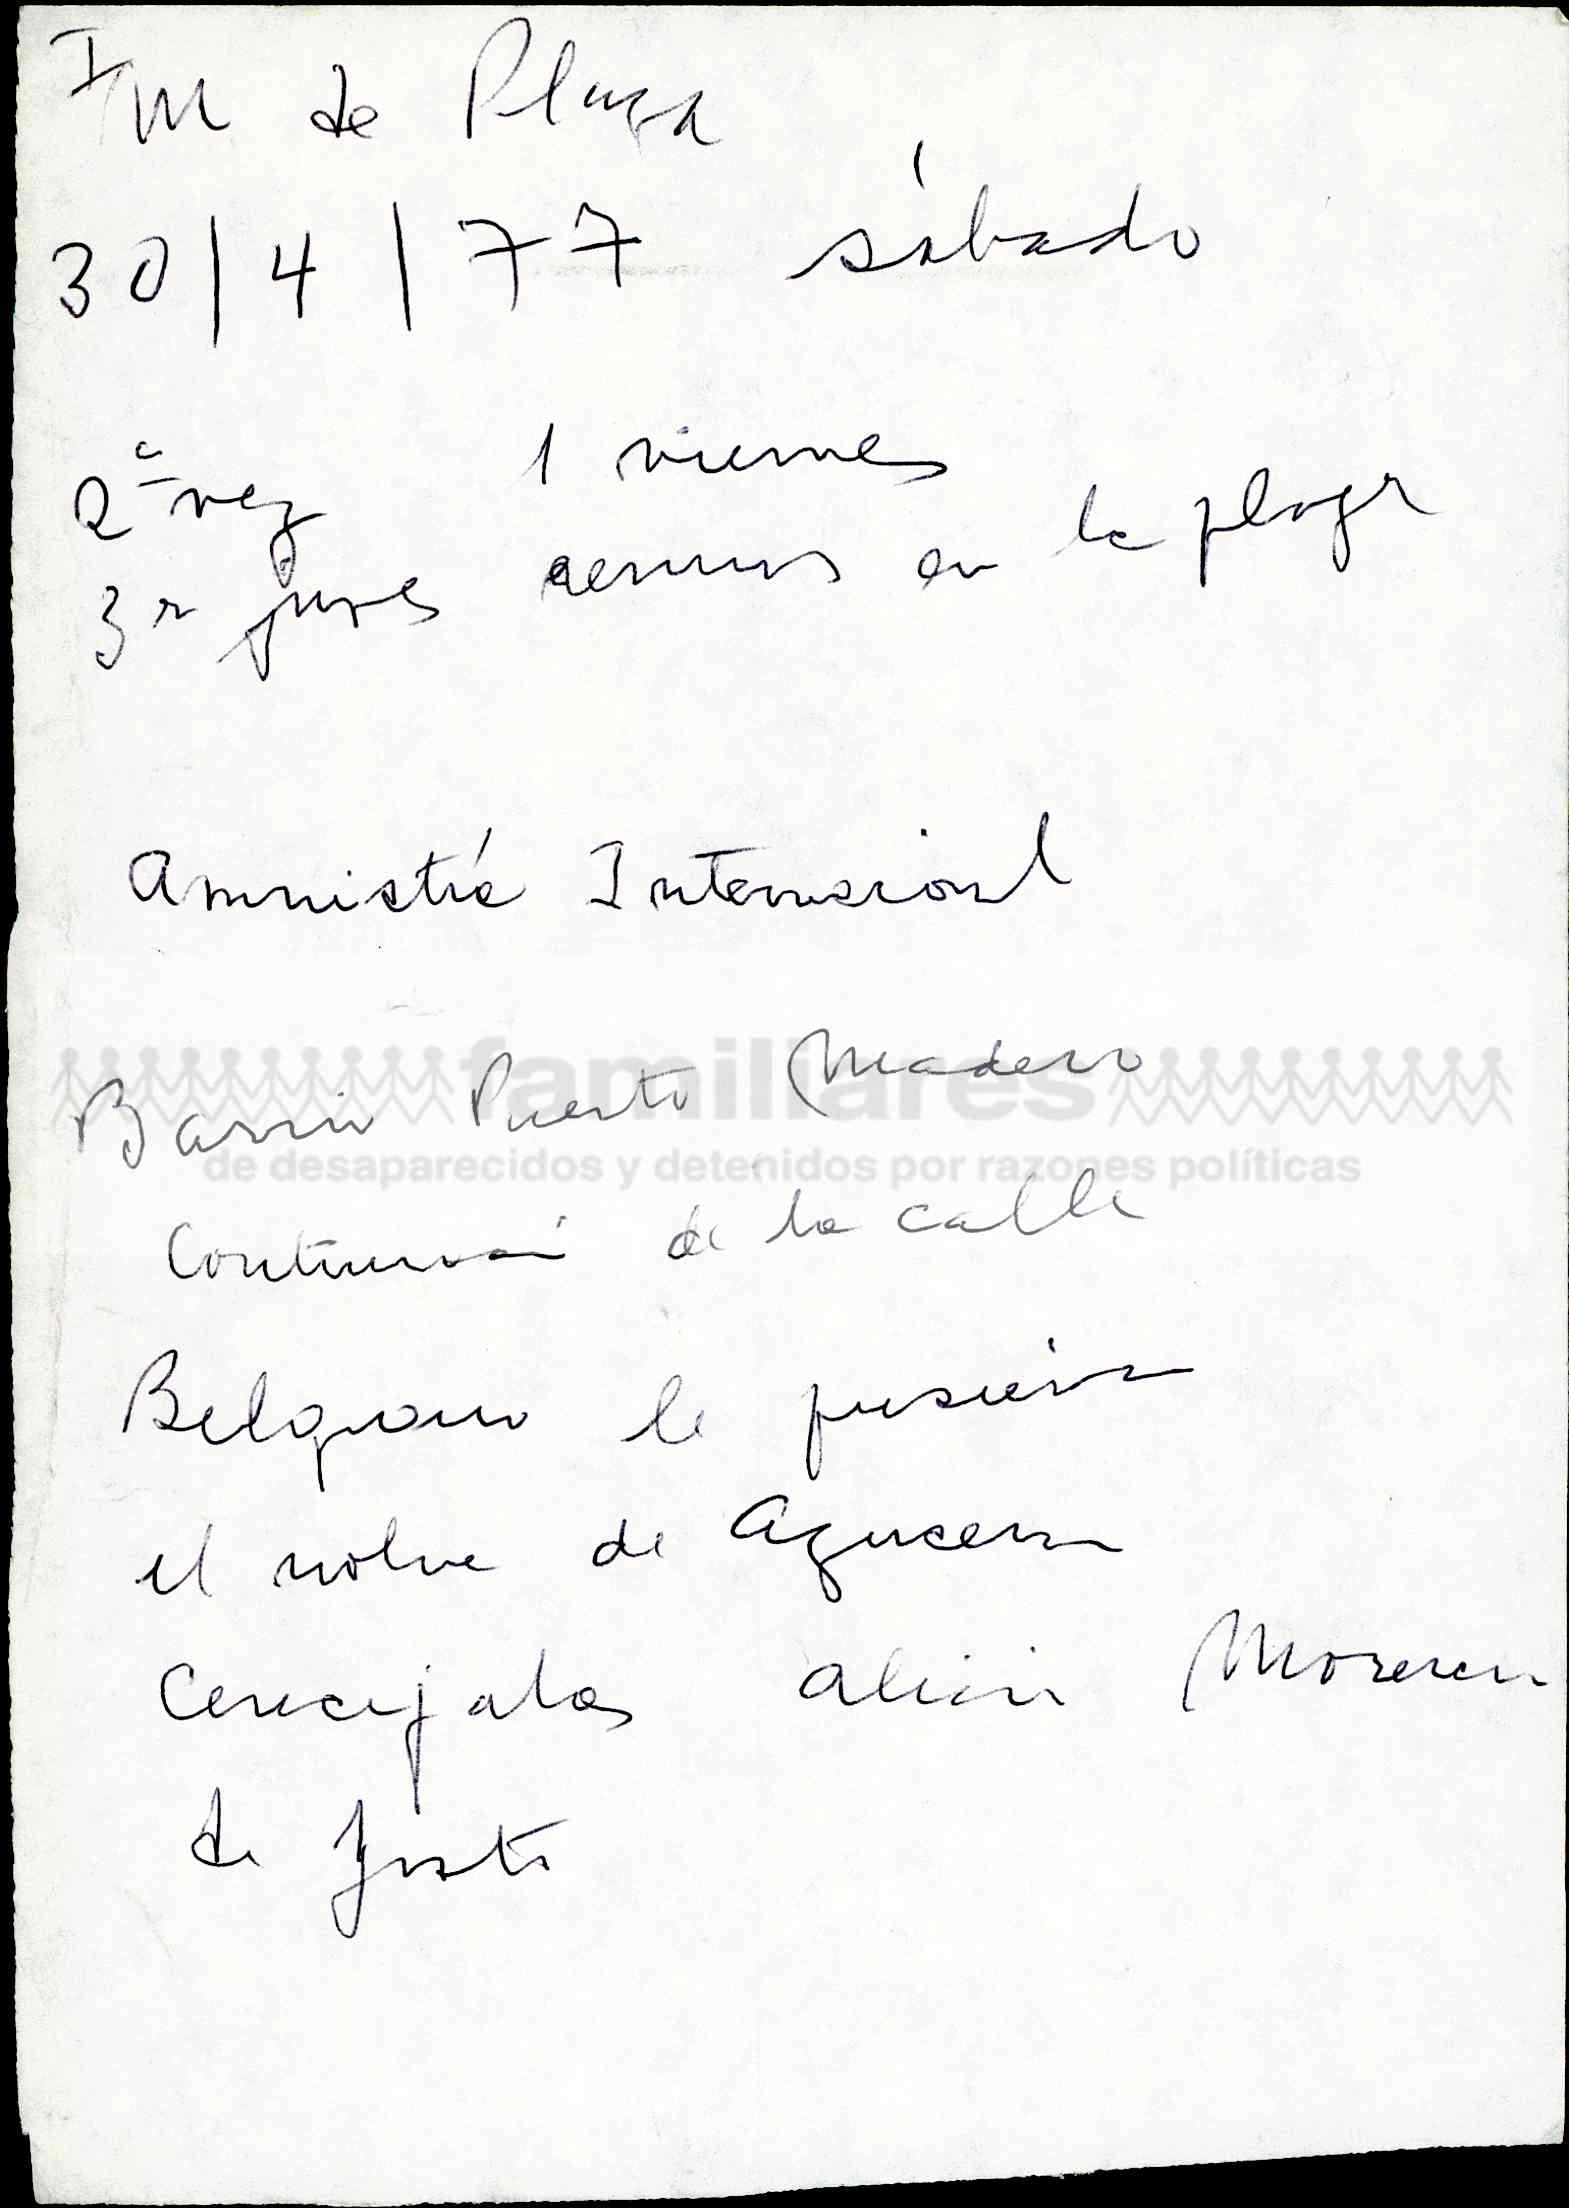 I M de Plaza
30/4/77 sábado
2ª vez 1 viernes
3r jueves en la plaza
Amnistía Internacional
Barrio Puerto Madero
familiares
de desaparecidos y detenidos por razones políticas
de la calle
Belgrano le pusieron
el nombre de Azucena
Alicia Moreau
de Justo